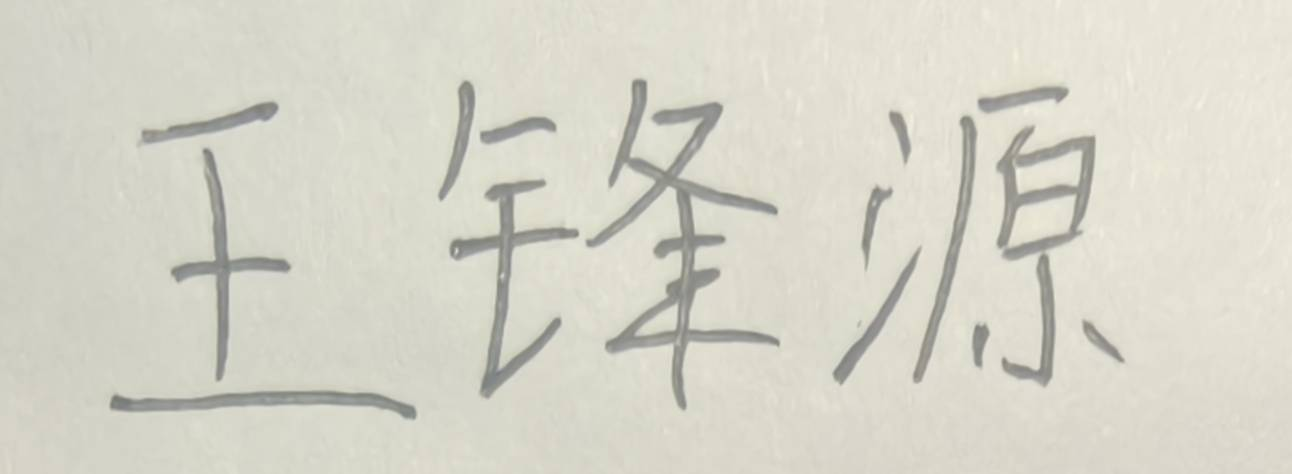 王锋源